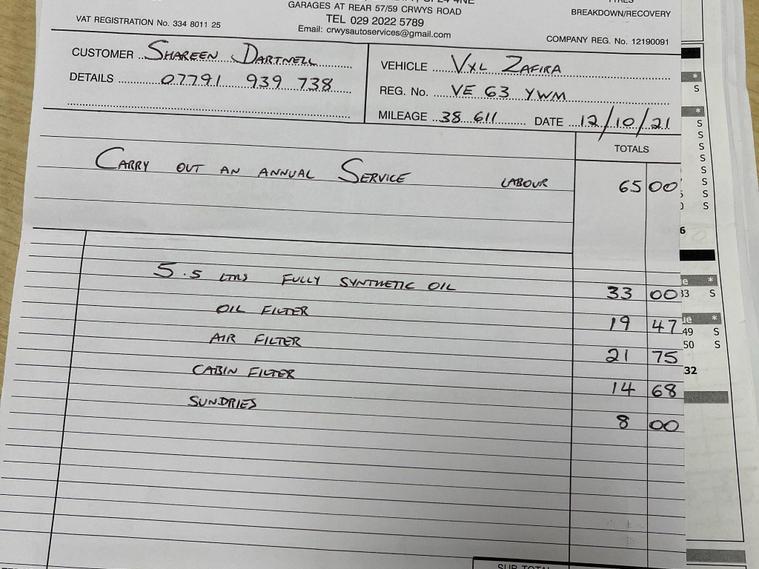 GARAGES AT REAR 57/59 CRWYS ROAD
VAT REGISTRATION No. 334 8011 25
TEL 029 2022 5789
Email: crwysautoservices@gmail.com
BREAKDOWN/RECOVERY
COMPANY REG. No. 12190091
CUSTOMER SHAREEN DARTNELL
DETAILS 07791 939 738
VEHICLE VXL ZAFIRA
REG. No. VE 63 YWM
MILEAGE 38 611 DATE 12/10/21
TOTALS
CARRY OUT AN ANNUAL SERVICE LABOUR 65 00
5.5 LTRS FULLY SYNTHETIC OIL 33 00
OIL FILTER 19 47
AIR FILTER 21 75
CABIN FILTER 14 68
SUNDRIES 8 00
SUB TOTAL